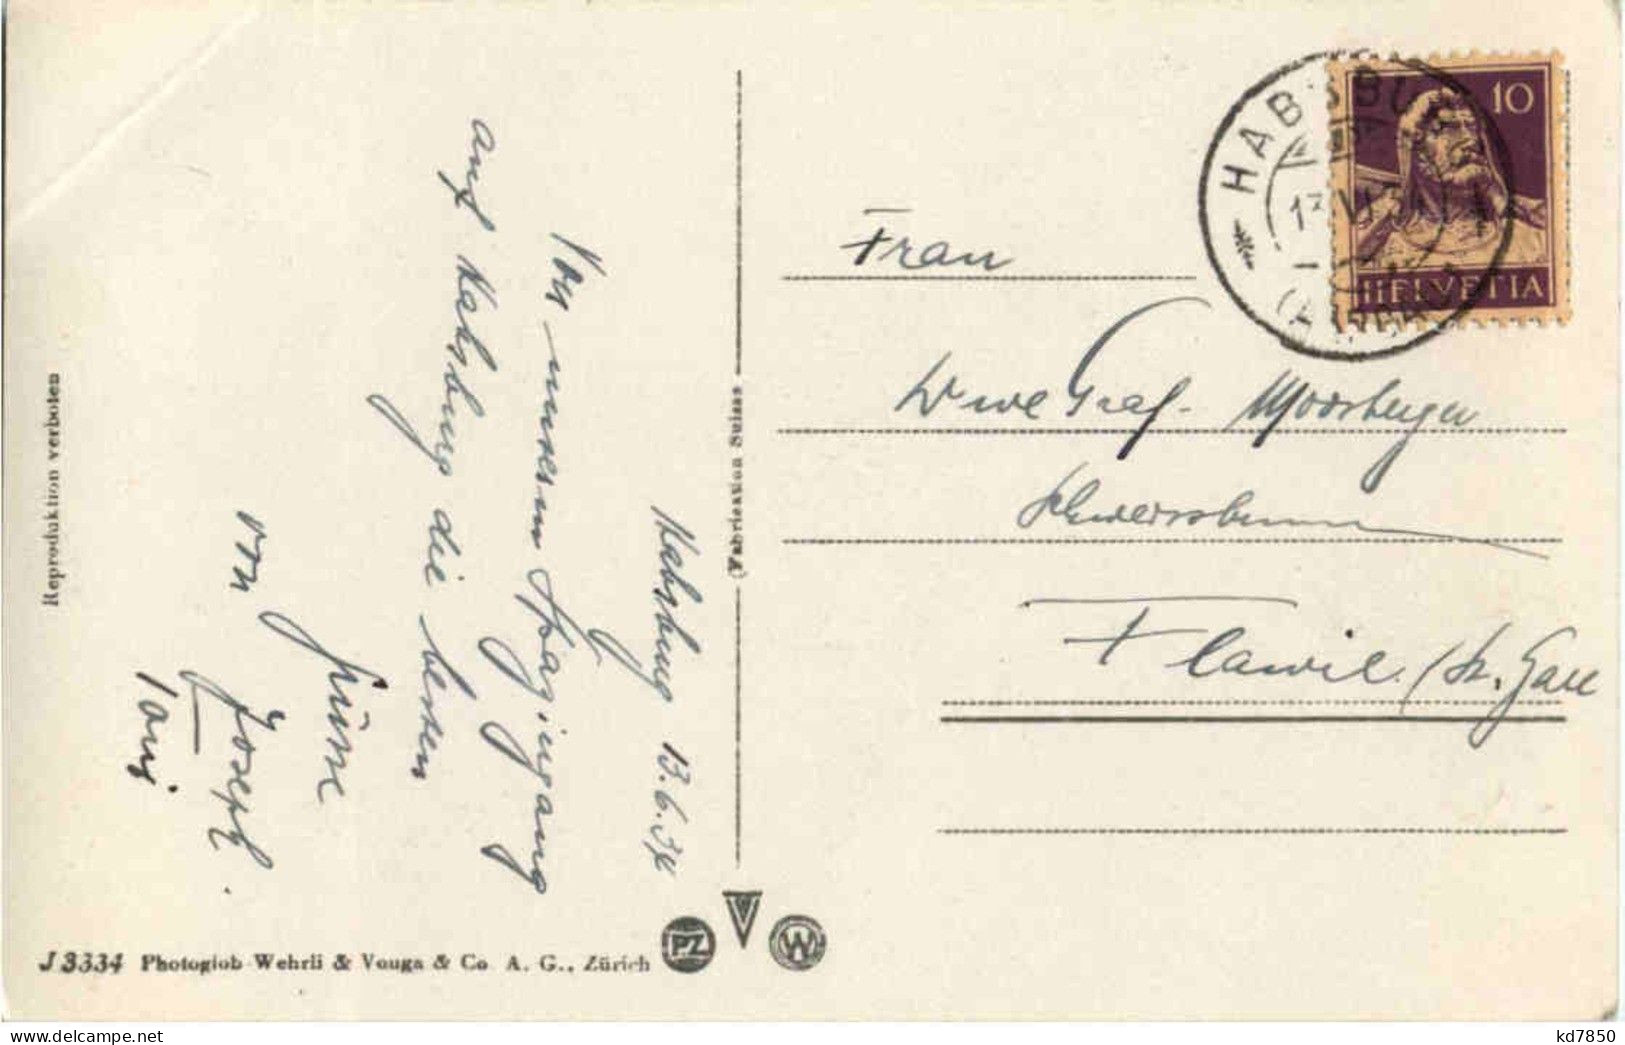 Habsburg 13.6.34
Von unserem Spaziergang
auf Habsburg die besten
Grüsse
von Joseph.
Frau
Wwe Graf. Moosberger
Flawil. (St. Gall
HABSBURG
(AARGAU)
10
HELVETIA
Reproduktion verboten
(Fabrication Suisse
J 3334 Photoglob-Wehrli & Vouga & Co A. G., Zürich
PZ
V
W
kd7850